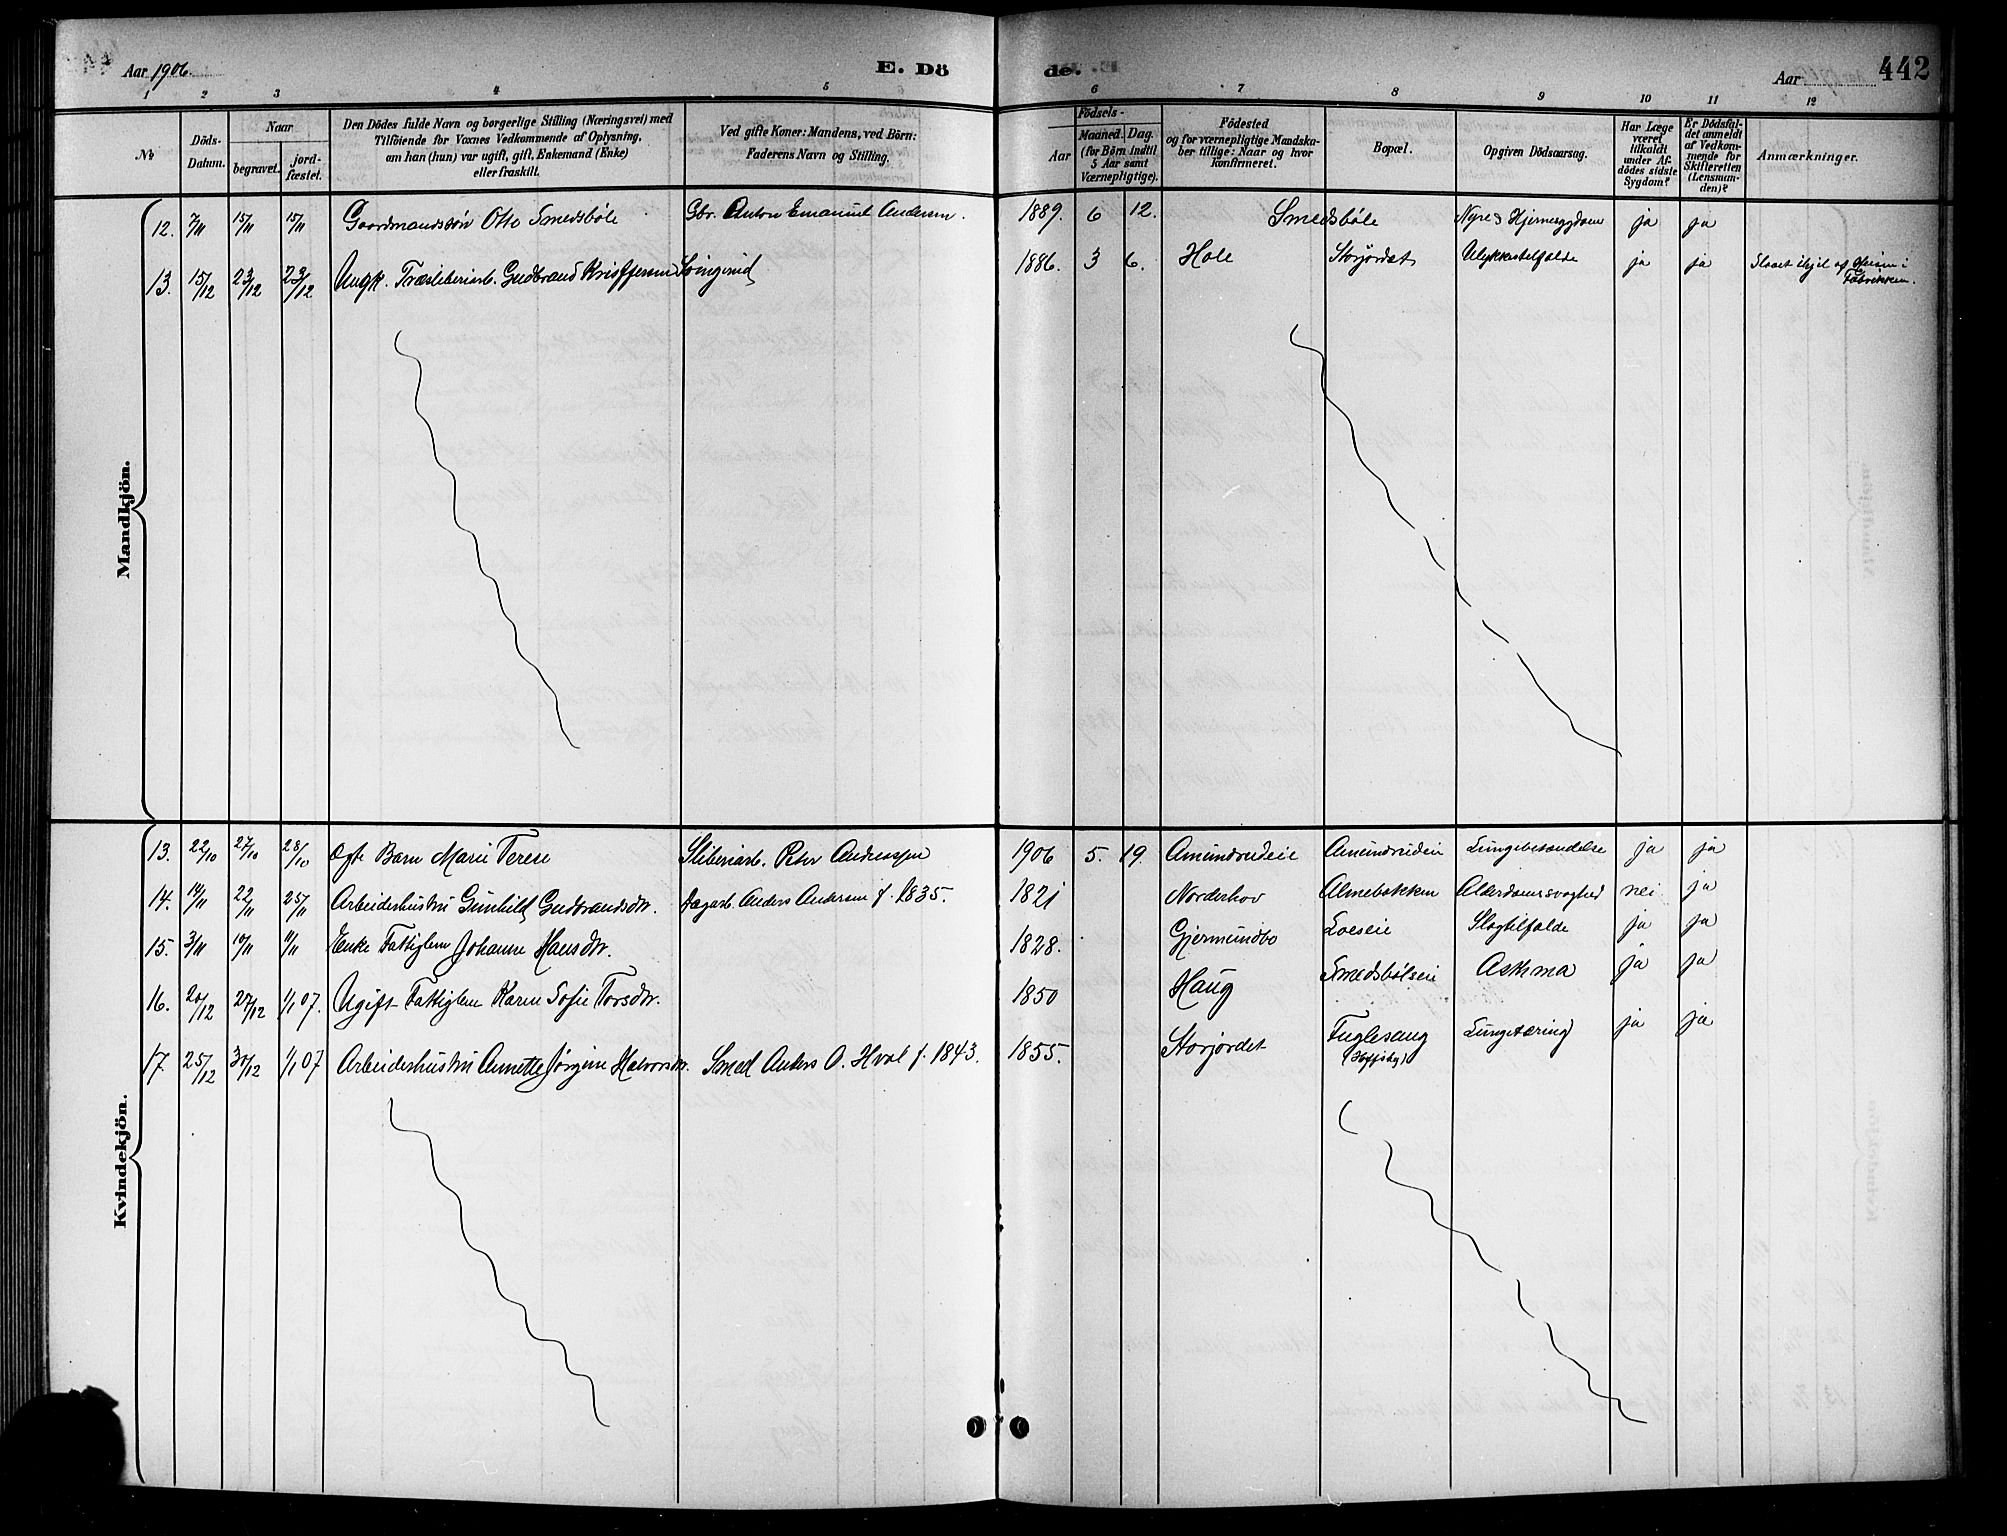 Aar 1906.
E. Dö
de.
Aar
442
1 2 3 4 5 6 7 8 9 10 11 12
№
Döds-
Datum.
Naar
begravet.
jord-
fæstet.
Den Dödes fulde Navn og borgerlige Stilling (Næringsvei) med
Tilföiende for Voxnes Vedkommende af Oplysning,
om han (hun) var ugift, gift, Enkemand (Enke)
eller fraskilt.
Ved gifte Koner: Mandens, ved Börn:
Faderens Navn og Stilling.
Födsels-
Aar
Maaned.
Dag.
(for Börn indtil
5 Aar samt
Værnepligtige).
Födested
og for værnepligtige Mandska-
ber tillige: Naar og hvor
konfirmeret.
Bopæl.
Opgiven Dödsaarsag.
Har Læge
været
tilkaldt
under Af-
dödes sidste
Sygdom?
Er Dödsfal-
det anmeldt
af Vedkom-
mende for
Skifteretten
(Lensman-
den)?
Anmærkninger.
Mandkjön.
12. 7/11 15/11 15/11 Gaardmandssön Otto Smedsböle Gbr. Anton Emanuel Andersen. 1889. 6 12. Smedsböle Nyre & Hjernesygdom ja ja
13. 15/12 23/12 23/12 Ungk. Træsliberiarb. Gudbrand Kristjersen 1886. 3 6. Hole Storjordet Ulykkestilfælde ja ja Slaaet ihjel af i
Fabrikken.
Kvindekjön.
13. 22/10 27/10 28/10 Ægte Barn Marie Terese Sliberiarb. Peter Andreassen 1906 5. 19. Amundrudeie Amundrudeie Lungebetændelse ja ja
14. 14/11 22/11 25/11 Arbeiderhustru Gunhild Gudbrandsdtr. Dagarb. Anders Andersen f. 1835. 1821 Norderhov Almebakken Alderdomssvaghed nei ja
15. 3/11 10/11 11/11 Enke Fattiglem Johanne Hansdtr. 1828. Gjermundbo Loeseie Slagtilfælde ja ja
16. 20/12 27/12 1/1 07. Ugift Fattiglem Karen Sofie Torsdtr. 1850 Haug Smedsbölseie Asthma ja ja
17. 25/12 30/12 1/1 07 Arbeiderhustru Annette Jörgine Halvorsdtr. Smed Anders A. Hval f. 1843. 1855. Storjordet Fuglesang Lungetæring ja ja